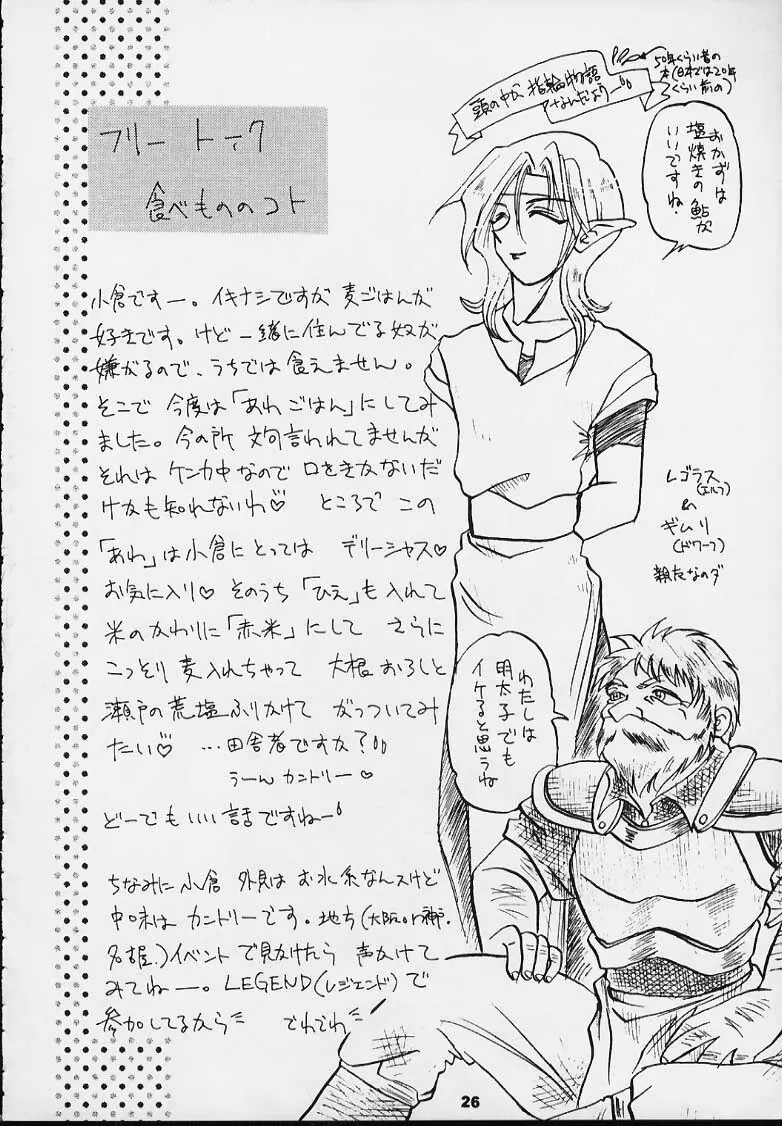 フリートーク
食べもののコト
頭の中が指輪物語
なんだよー
50年くらい昔の
本(日本では20年
くらい前の)
おかずは
塩焼きの鮎が
いいですね.
小倉ですー。イキナシですが麦ごはんが
好きです。けど一緒に住んでる奴が
嫌がるので、うちでは食えません。
そこで今度は「あわごはん」にしてみ
ました。今の所文句言われてませんが
それはケンカ中なので口をきかないだ
けかも知れないわ♡ ところでこの
「あわ」は小倉にとってはデリーシャス♡
お気に入り♡ そのうち「ひえ」も入れて
米のかわりに「赤米」にして さらに
こっそり麦入れちゃって 大根おろしと
瀬戸の荒塩ふりかけて がっついてみ
たい♡ …田舎者ですか?
うーんカントリー♡
どーでもいい話ですねー
レゴラス
(エルフ)
&
ギムリ
(ドワーフ)
親友なのダ
わたしは
明太子でも
イケると思うね
ちなみに小倉 外見はお水系なんスけど
中味はカントリーです。地方(大阪or神戸.
名古屋.)イベントで見かけたら声かけて
みてねー。LEGEND(レジェンド)で
参加してるから でわでわ
26